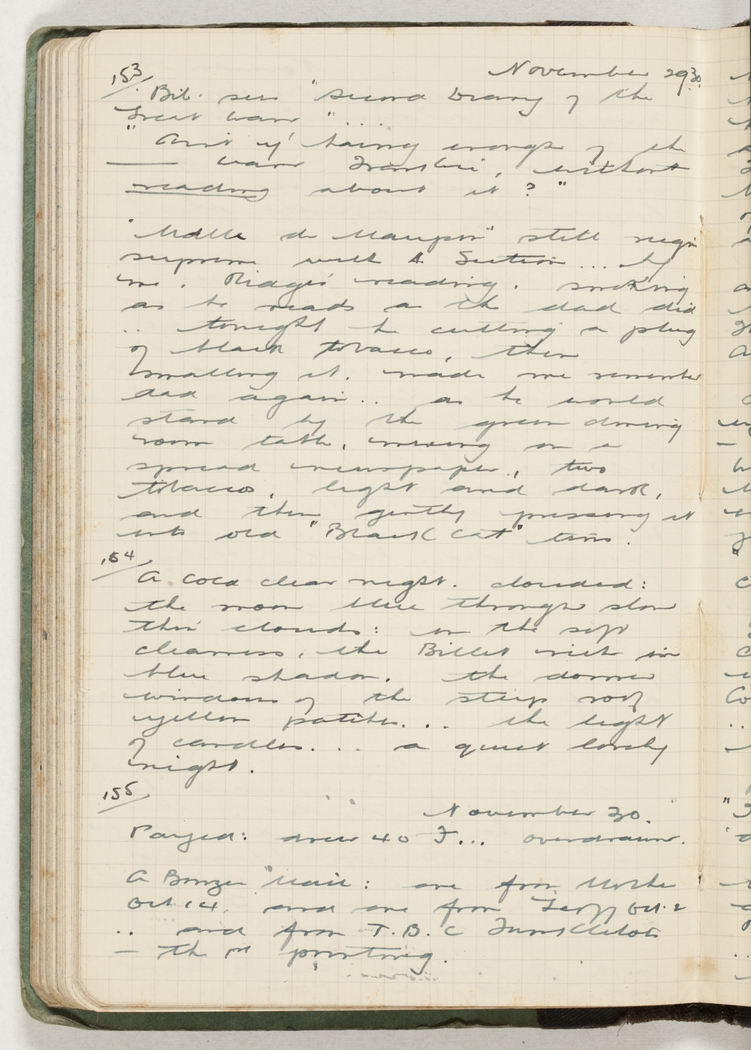 153
November 29 30.
Bib. sees "second Diary of the
Great War" ....
"Ain't y' having enough of the
— war Frankie, without
reading about it?"
"Mdlle de Maupin" still reigns
supreme with A Section... by
me, Ridge's reading. smoking
as he reads as the dad did
.. tonight he cutting a plug
of black tobacco, then
smalling it, made me remember
dad again.. as he would
stand by the green dining
room table, mixing on a
spread newspaper, two
tobaccos, light and dark,
and then gently pressing it
into old "Black Cat" tins.
154
A cold clear night. clouded:
the moon blue through slow
thin clouds: in the soft
clearness, the Billet rich in
blue shadow. the dormer
windows of the steep roof
yellow patches... the light
of candles.... a quiet lovely
night.
155
November 30.
Payed: drew 40 F... overdrawn.
A Bonzer Mail: one from Mother
Oct 14, and one from Geoff Oct. 2
.. and from T.B.C
— the printing.